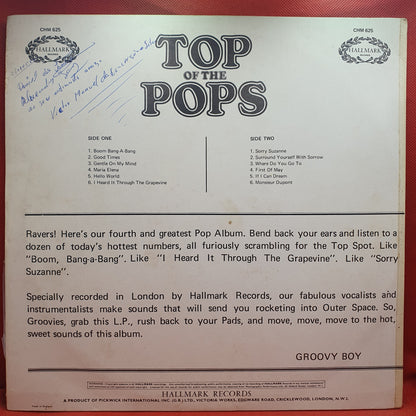 CHM 625
CHM 625
HALLMARK
HALLMARK
TOP
OF THE
POPS
SIDE ONE
1. Boom Bang-A-Bang
2. Good Times
3. Gentle On My Mind
4. Maria Elena
5. Hello World
6. I Heard It Through The Grapevine
SIDE TWO
1. Sorry Suzanne
2. Surround Yourself With Sorrow
3. Where Do You Go To
4. First Of May
5. If I Can Dream
6. Monsieur Dupont
Ravers! Here's our fourth and greatest Pop Album. Bend back your ears and listen to a
dozen of today's hottest numbers, all furiously scrambling for the Top Spot. Like
"Boom, Bang-a-Bang". Like "I Heard It Through The Grapevine". Like "Sorry
Suzanne".
Specially recorded in London by Hallmark Records, our fabulous vocalists and
instrumentalists make sounds that will send you rocketing into Outer Space. So,
Groovies, grab this L.P., rush back to your Pads, and move, move, move to the hot,
sweet sounds of this album.
GROOVY BOY
HALLMARK RECORDS
A PRODUCT OF PICKWICK INTERNATIONAL INC (G.B.) LTD, VICTORIA WORKS, EDGWARE ROAD, CRICKLEWOOD, LONDON, N.W.2.